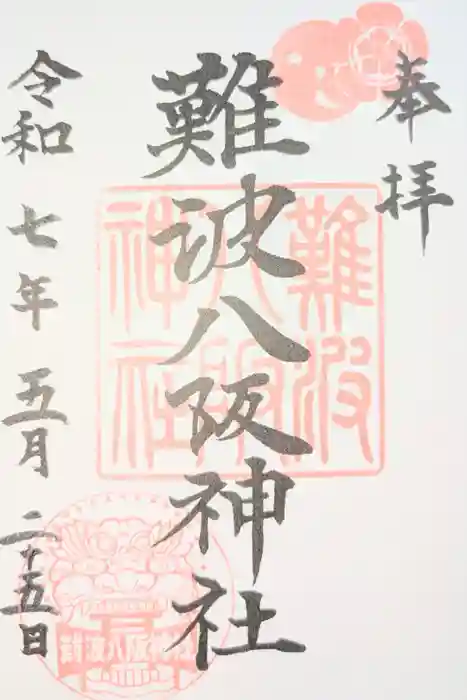 奉拝
難波八阪神社
令和七年五月二十五日
難波八阪神社
難波八阪神社